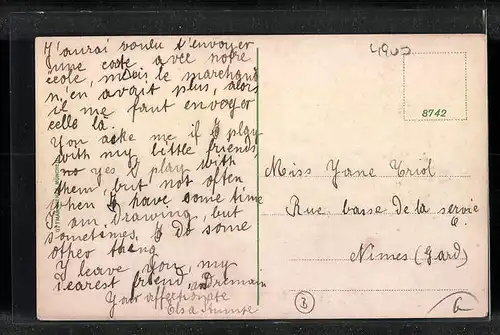 J'aurai voulu t'envoyer
une carte avec notre
école, mais le marchand
n'en avait plus, alors
il me faut envoyer
celle là.
You aske me if I play
with my little friends,
no yes I play with
them, but not often
when I have some time
I am drawing, but
sometimes, I do some
other thing
I leave you, my
dearest friend,
Your affectionate
Elsa
8742
Miss Jane Triol
Rue basse de la servie
6.
Nimes (Gard)
B